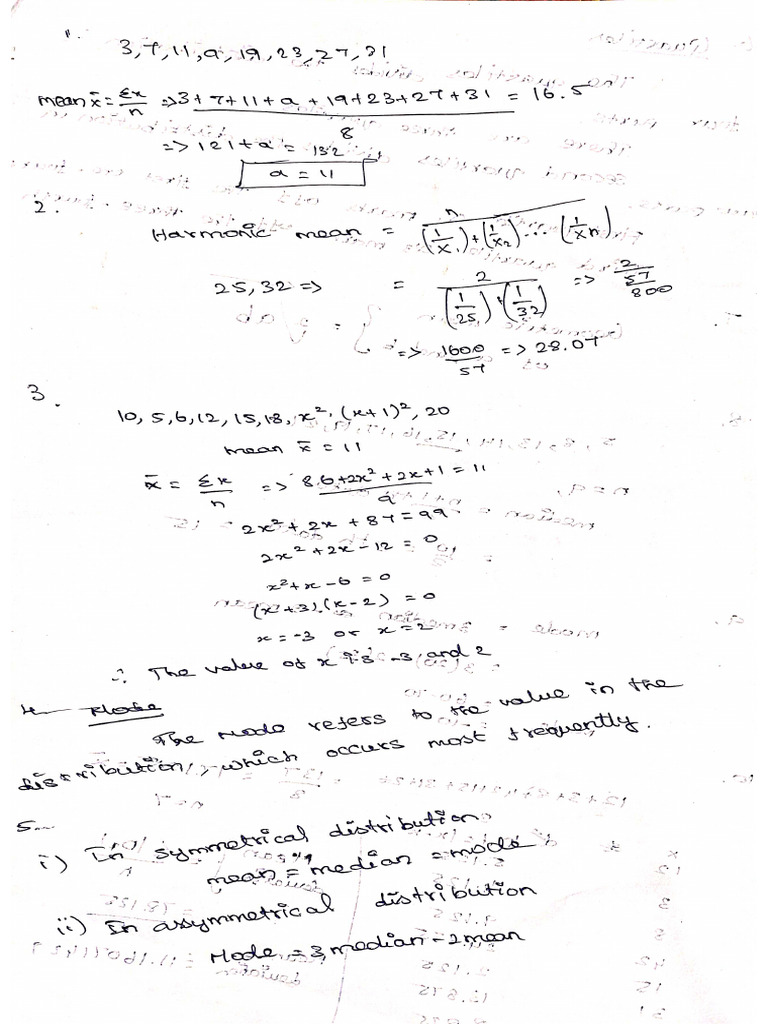 1.
3, 7, 11, a, 19, 23, 27, 31
mean x̄ = Σx/n => 3+7+11+a+19+23+27+31 / 8 = 16.5
=> 121+a = 132
a = 11
2.
Harmonic mean = n / (1/x₁)+(1/x₂)...(1/xn)
25, 32 => = 2 / (1/25)+(1/32) => 2 / 57/800
=> 1600/57 => 28.07
3.
10, 5, 6, 12, 15, 18, x², (x+1)², 20
mean x̄ = 11
x̄ = Σx/n => 86+2x²+2x+1 / 9 = 11
2x² + 2x + 87 = 99
2x² + 2x - 12 = 0
x² + x - 6 = 0
(x+3).(x-2) = 0
x = -3 or x = 2
∴ The value of x is -3 and 2
4. Mode
The Mode refers to the value in the
distribution, which occurs most frequently.
5.
i) In symmetrical distribution
mean = median = mode
ii) In assymmetrical distribution
Mode = 3 median - 2 mean